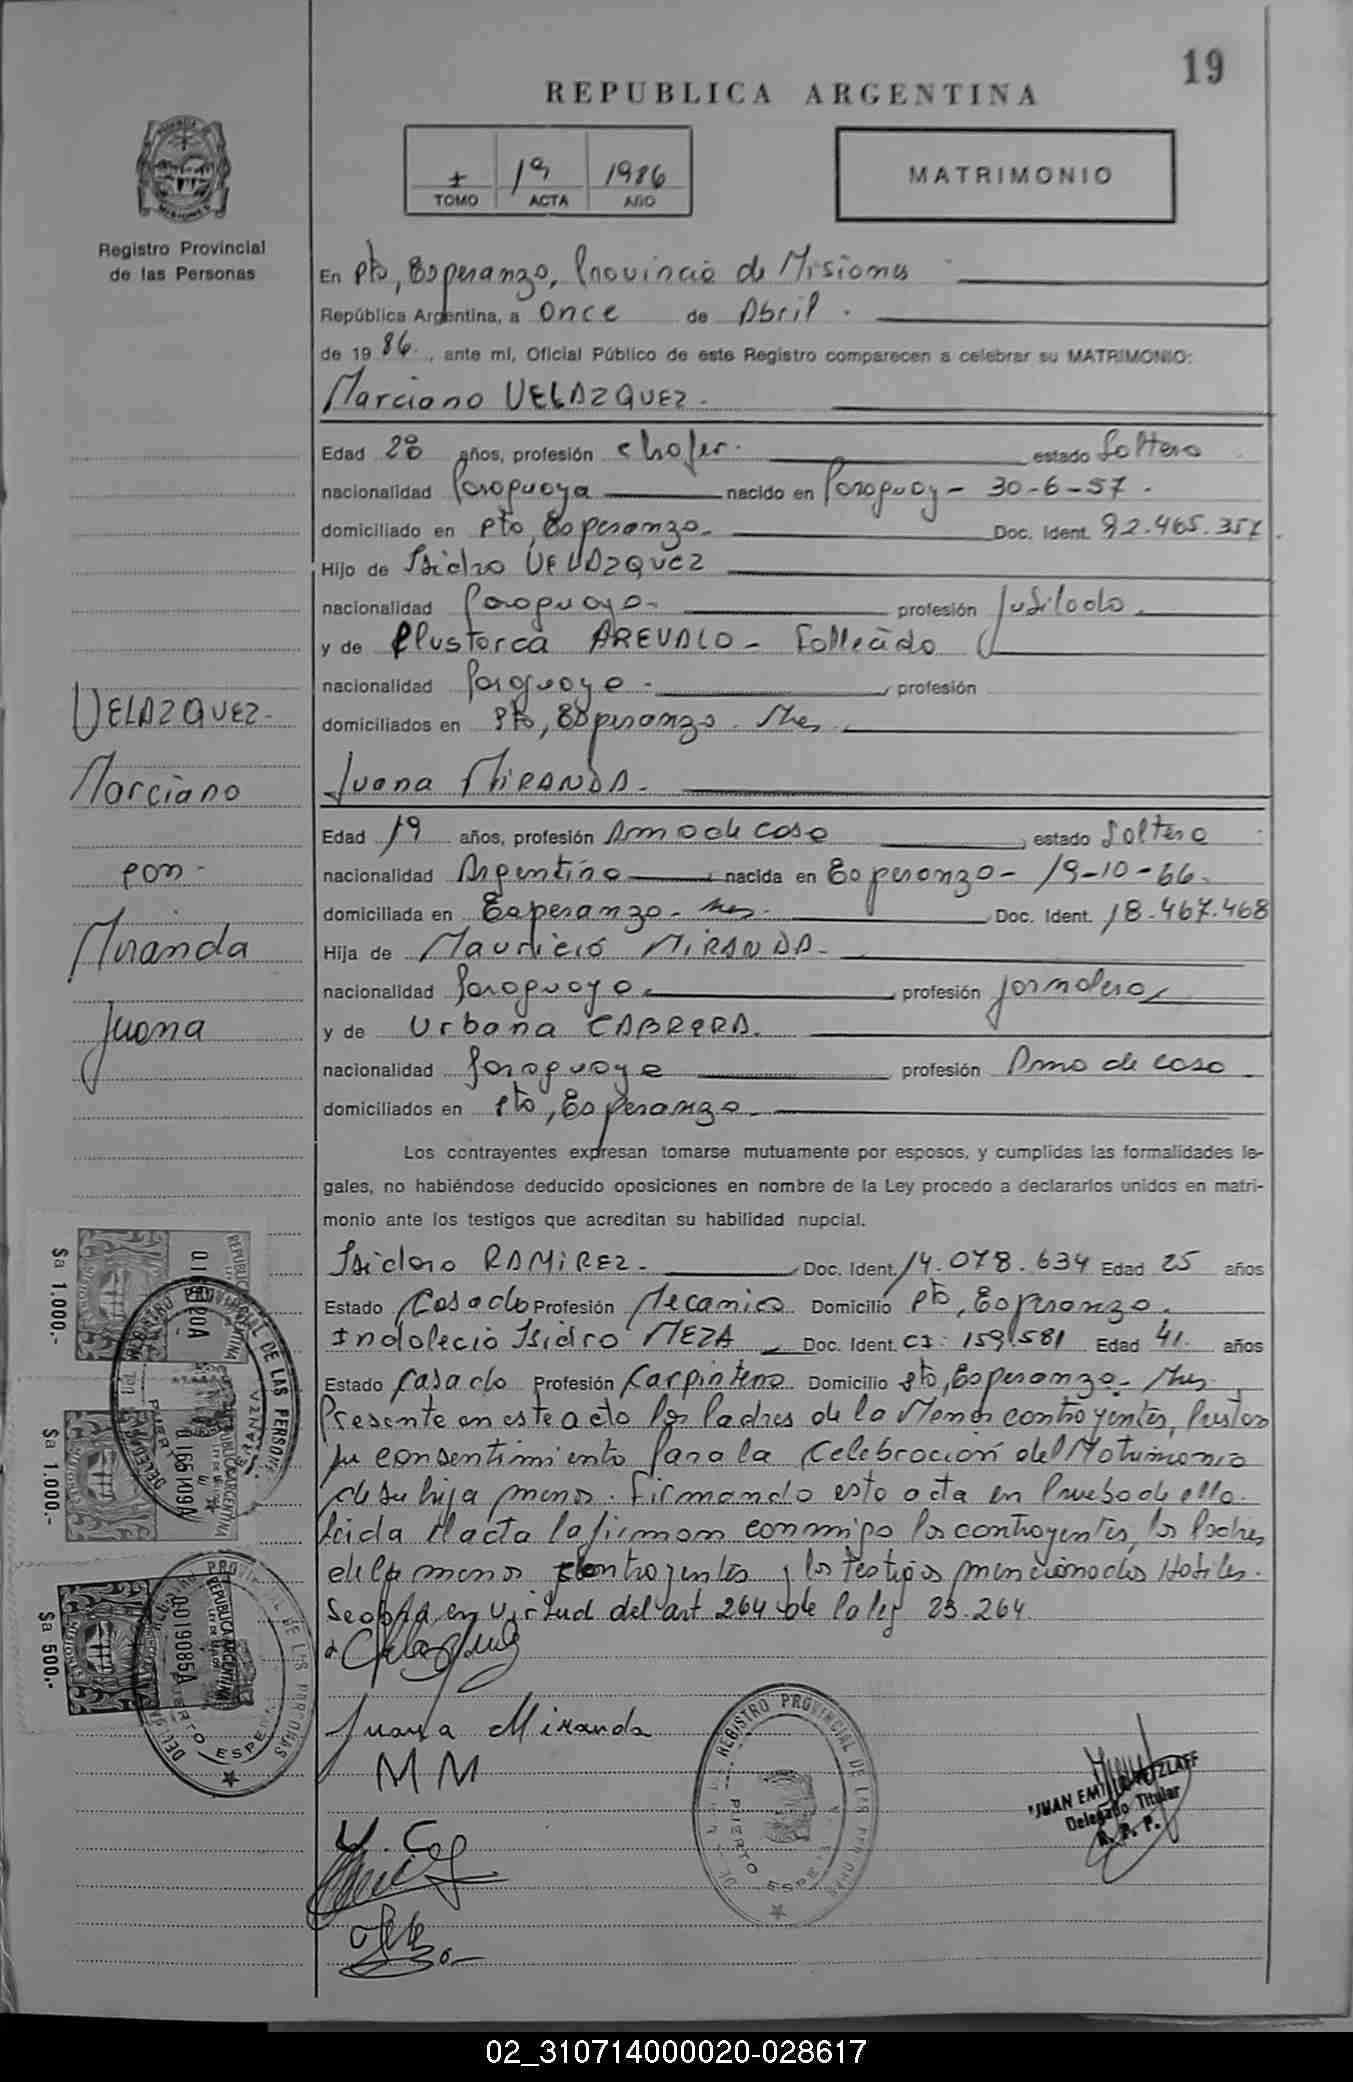 19
REPUBLICA ARGENTINA
I 19 1986
TOMO ACTA AÑO
MATRIMONIO
Registro Provincial
de las Personas
En Pto, Esperanza, Provincia de Misiones
República Argentina, a Once de Abril.
de 1986., ante mí, Oficial Público de este Registro comparecen a celebrar su MATRIMONIO:
Marciano VELAZQUEZ.
Edad 28 años, profesión chofer. estado Soltero
nacionalidad Paraguaya nacido en Paraguay - 30-6-57.
domiciliado en Pto, Esperanza. Doc. Ident. 92.465.357.
Hijo de Isidro VELAZQUEZ
nacionalidad Paraguaya- profesión Jubilado.
y de AREVALO - Fallecido
nacionalidad Paraguaya - profesión
domiciliados en Pto, Esperanza. Mnes.
Juana MIRANDA.
Edad 19 años, profesión Ama de casa estado Soltera
nacionalidad Argentina nacida en Esperanza - 19-10-66.
domiciliada en Esperanza - Mnes. Doc. Ident. 18.467.468
Hija de Mauricio MIRANDA.
nacionalidad Paraguaya. profesión jornalero,
y de Urbana CABRERA.
nacionalidad Paraguaya profesión Ama de casa.
domiciliados en Pto, Esperanza.
VELAZQUEZ.
Marciano
con-
Miranda
Juana
Los contrayentes expresan tomarse mutuamente por esposos, y cumplidas las formalidades le-
gales, no habiéndose deducido oposiciones en nombre de la Ley procedo a declararlos unidos en matri-
monio ante los testigos que acreditan su habilidad nupcial.
Isidoro RAMIREZ. Doc. Ident. 14.078.634 Edad 25 años
Estado Casado Profesión Mecanico Domicilio Pto, Esperanza.
Indalecio Isidro MEZA Doc. Ident. CI: 159.581 Edad 41. años
Estado Casado Profesión Carpintero Domicilio Pto, Esperanza - Mnes.
Presente en este acto los Padres de la Menor contrayentes, Prestan
su consentimiento Para la Celebración del Matrimonio
de su hija menor. Firmando esta acta en Prueba de ello.
Leida el acta la firman conmigo los contrayentes, los Padres
de la menor contrayentes y los testigos mencionados Habiles.
en virtud del art 264 de la ley 23.264.
Juana Miranda
MM
REGISTRO PROVINCIAL DE LAS PERSONAS
PUERTO ESPERANZA
Delegado Titular
R. P. P.
$a 1.000.-
$a 1.000.-
$a 500.-
REPUBLICA ARGENTINA
0165109A
0019085A
02_310714000020-028617